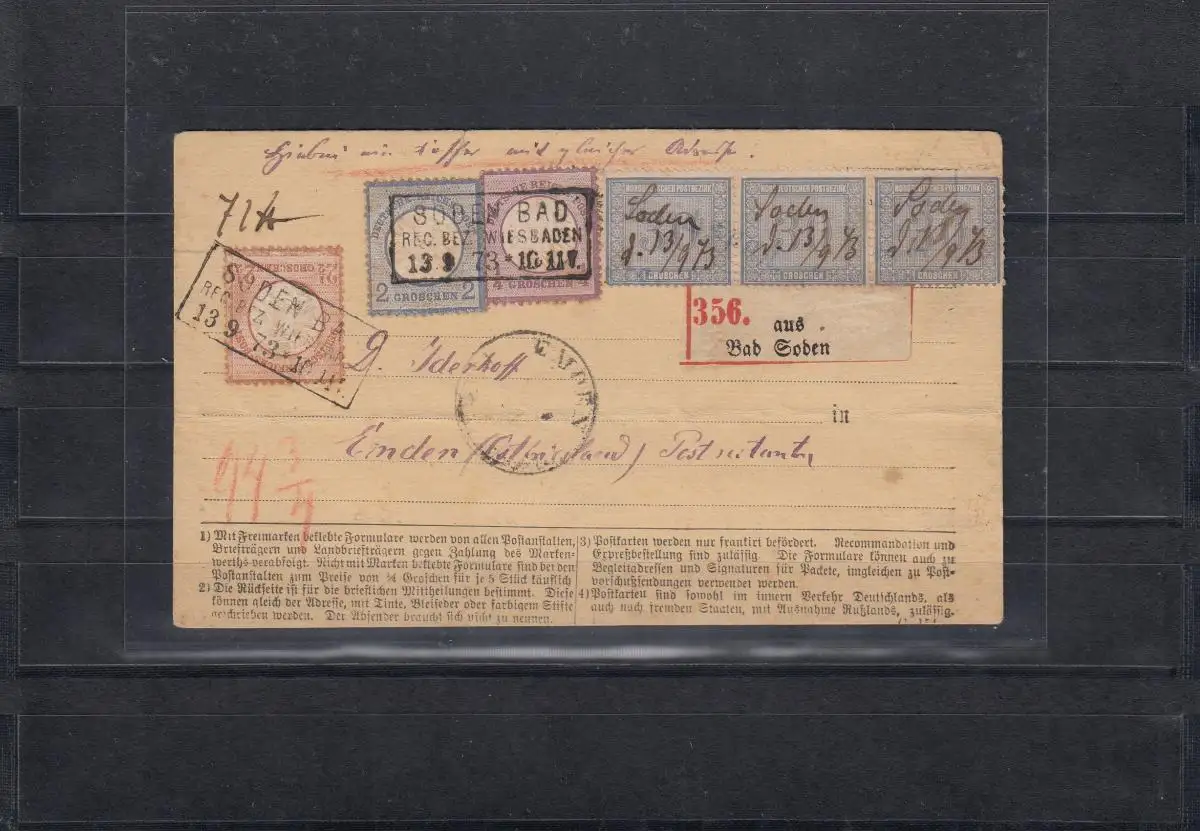 mit gleicher Adresse.
71
NORDDEUTSCHER POSTBEZIRK
NORDDEUTSCHER POSTBEZIRK
NORDDEUTSCHER POSTBEZIRK
SODEN BAD
REG. BEZ. WIESBADEN
13 9 73 * 10-11 V.
Soden
d. 13/9 73
Soden
d. 13/9 73
Soden
9/73
GROSCHEN
GROSCHEN
GROSCHEN
2 GROSCHEN 2
GROSCHEN
2½ GROSCHEN 2½
SODEN BA
13 9 73 *
356.
aus
Bad Soden
EMDEN
in
Emden (Ostfriesland)
44 3/4
1) Mit Freimarken beklebte Formulare werden von allen Postanstalten,
Briefträgern und Landbriefträgern gegen Zahlung des Marken-
werths verabfolgt. Nicht mit Marken beklebte Formulare sind bei den
Postanstalten zum Preise von ¼ Groschen für je 5 Stück käuflich
2) Die Rückseite ist für die brieflichen Mittheilungen bestimmt. Diese
können gleich der Adresse, mit Tinte, Bleifeder oder farbigem Stifte
geschrieben werden. Der Absender braucht sich nicht zu nennen.
3) Postkarten werden nur frankirt befördert. Recommandation und
Expreßbestellung sind zulässig. Die Formulare können auch zu
Begleitadressen und Signaturen für Packete, imgleichen zu Post-
vorschußsendungen verwendet werden.
4) Postkarten sind sowohl im innern Verkehr Deutschlands, als
auch nach fremden Staaten, mit Ausnahme Rußlands, zulässig.